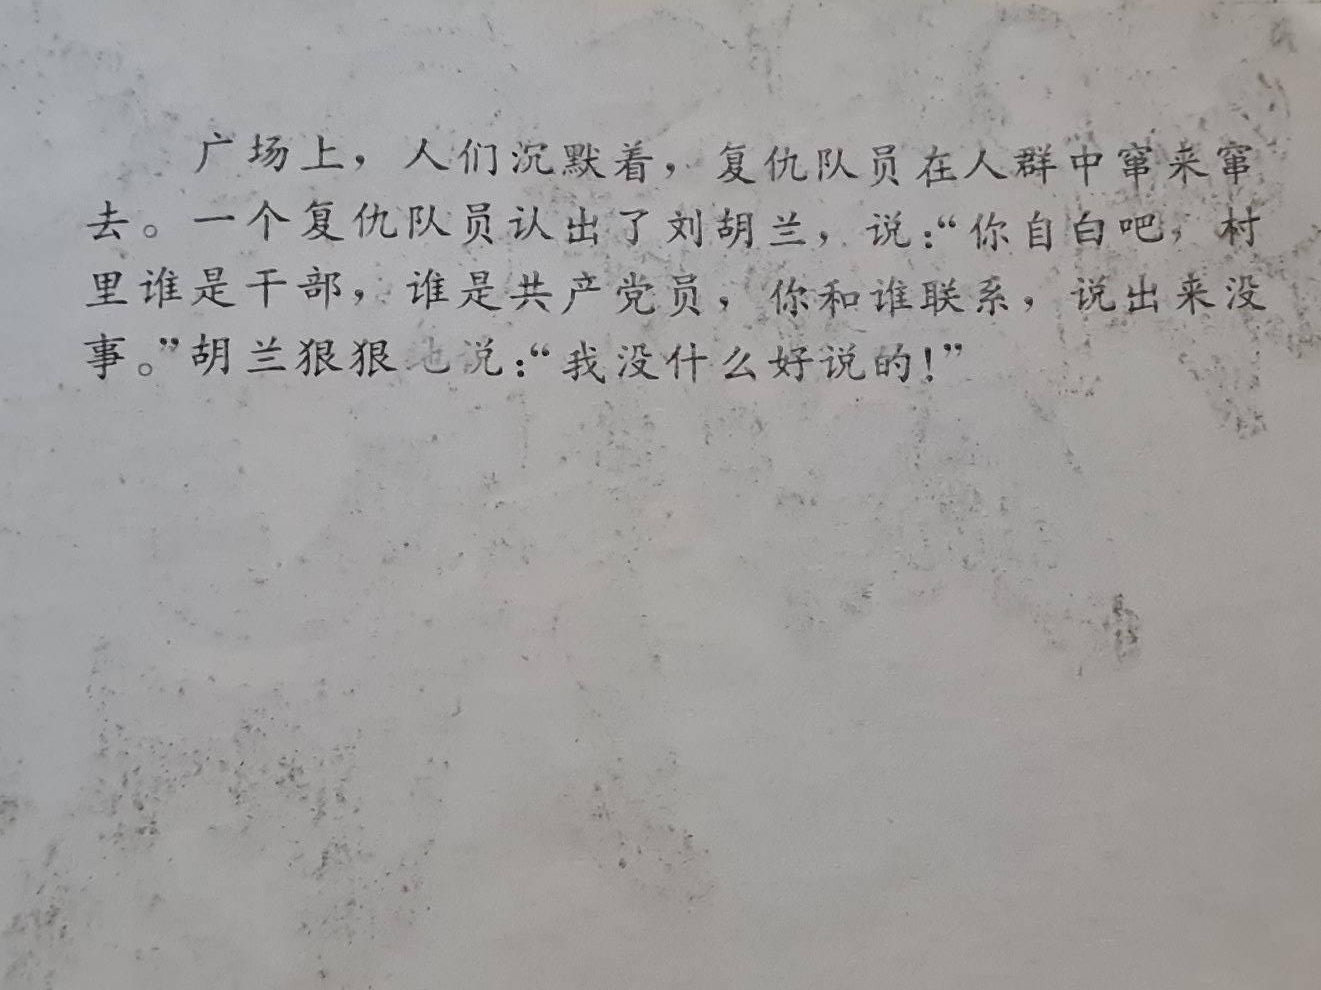 广场上，人们沉默着，复仇队员在人群中窜来窜
去。一个复仇队员认出了刘胡兰，说：“你自白吧，村
里谁是干部，谁是共产党员，你和谁联系，说出来没
事。”胡兰狠狠地说：“我没什么好说的！”